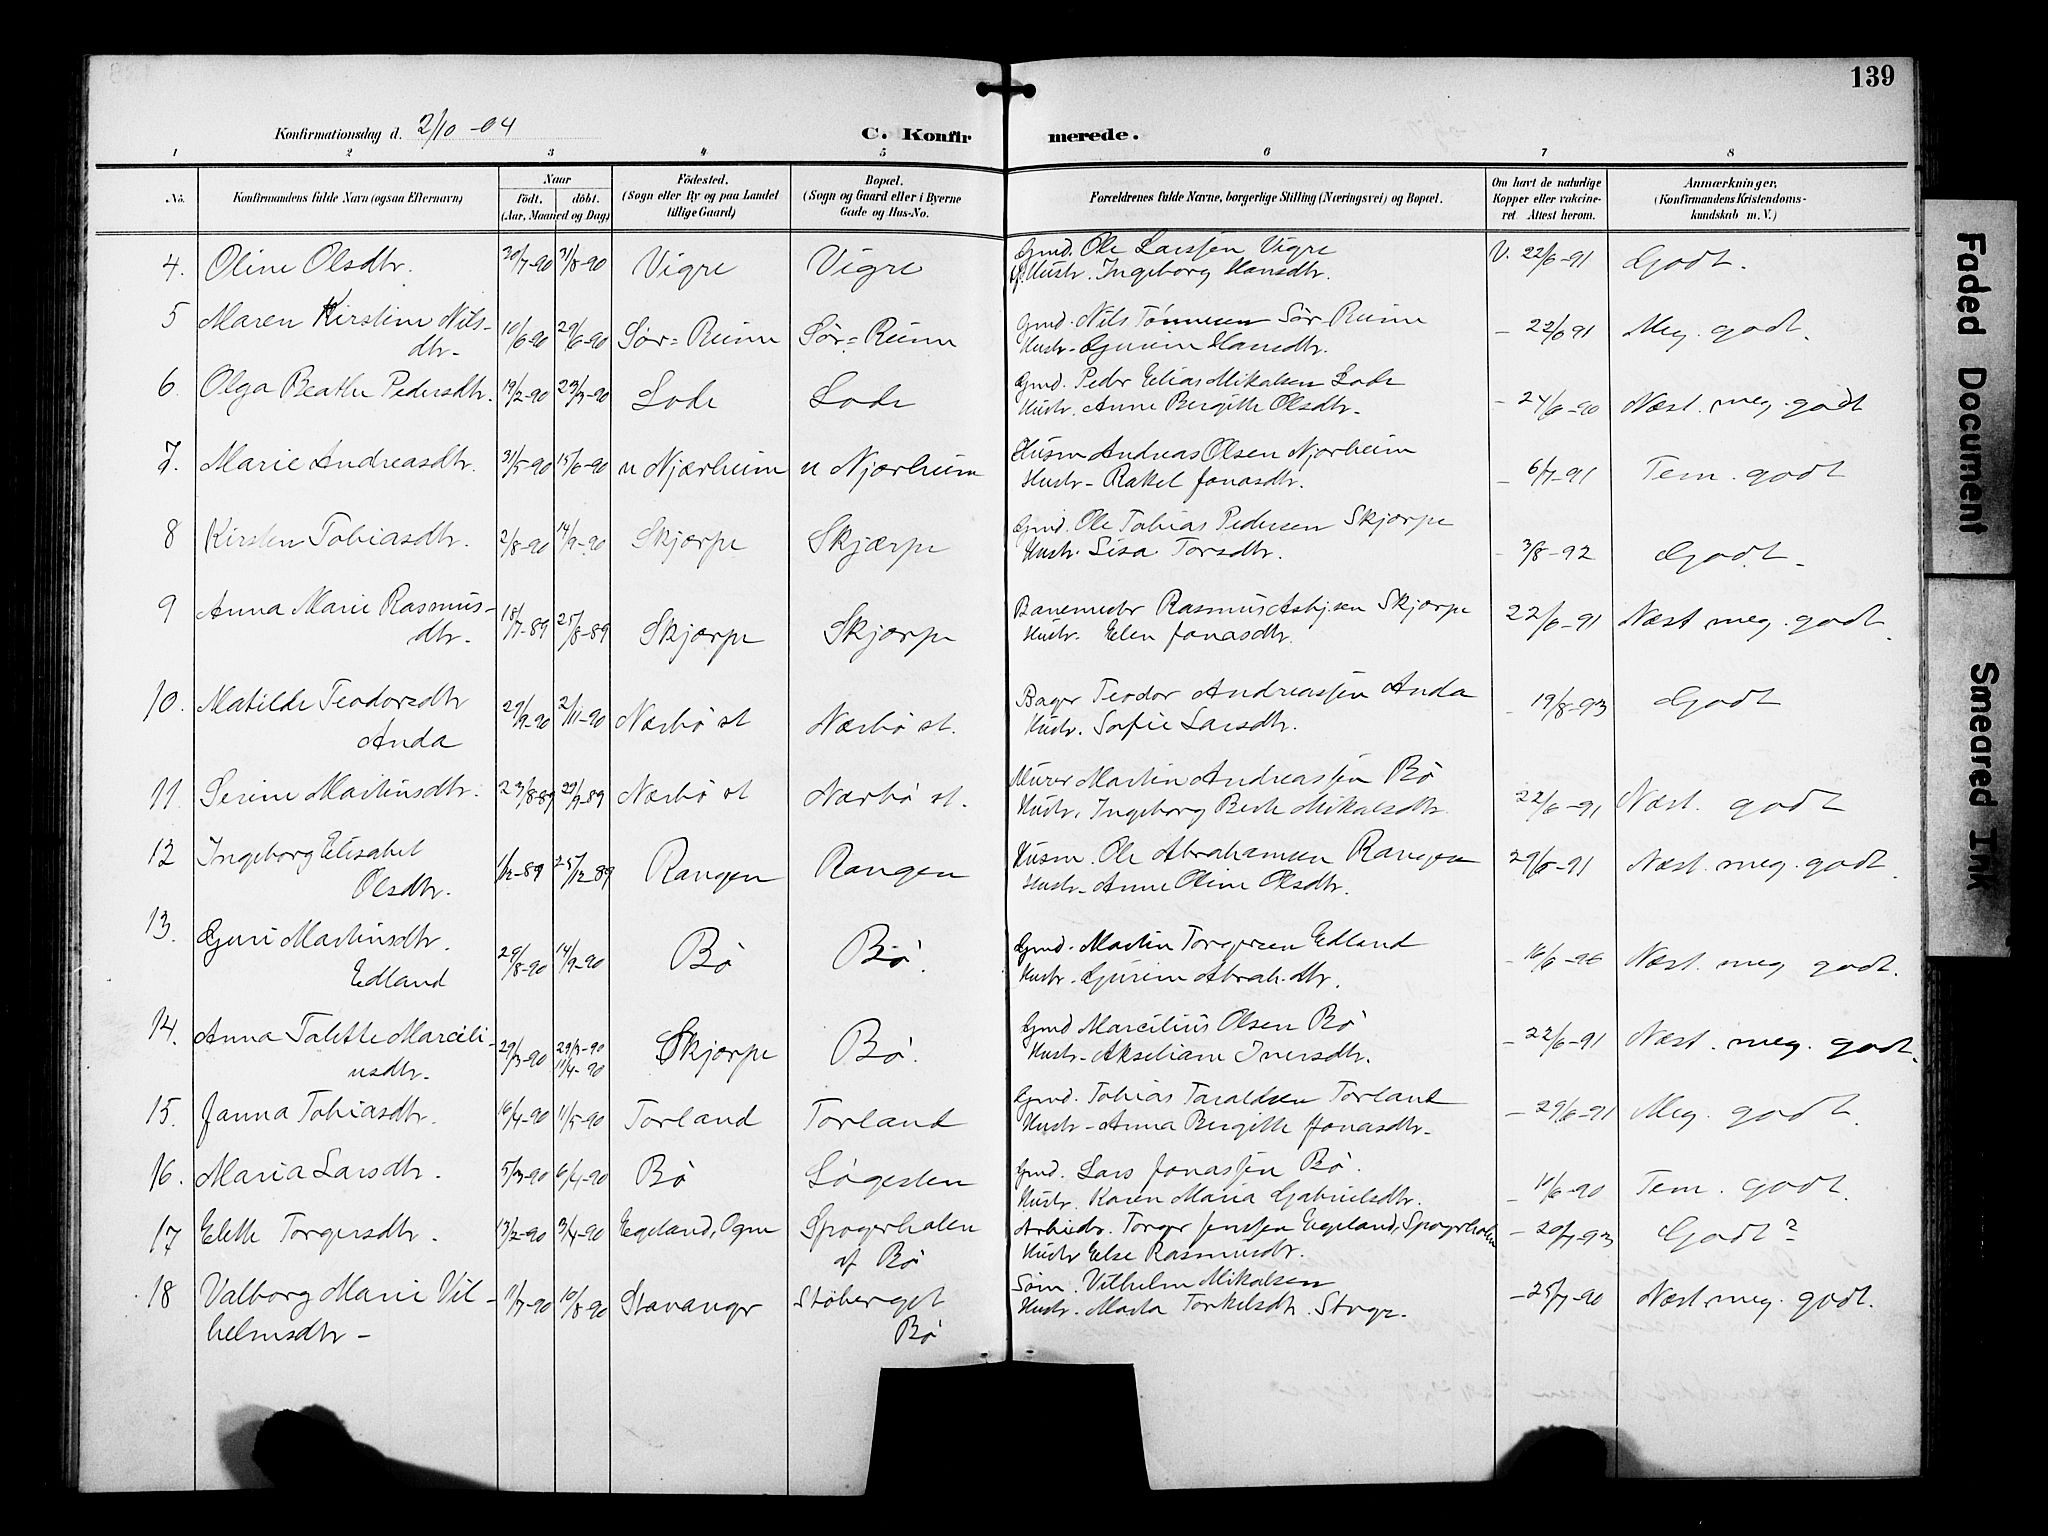 139
Konfirmationsdag d. 2/10 -04
C. Konfirmerede.
1 2 3 4 5 6 7 8
No.
Konfirmandens fulde Navn (ogsaa Efternavn)
Naar
Født. døbt.
(Aar, Maaned og Dag)
Fødested.
(Sogn eller By og paa Landet
tillige Gaard)
Bopæl.
(Sogn og Gaard eller i Byerne
Gade og Hus-No.
Forældrenes fulde Navne, borgerlige Stilling (Næringsvei) og Bopæl.
Om havt de naturlige
Kopper eller vakcine-
ret. Attest herom.
Anmærkninger,
(Konfirmandens Kristendoms-
kundskab m. V.)
4. Oline Olsdtr. 30/7-90 31/8-90 Vigre Vigre Gmd. Ole Larssen Vigre V. 22/6-91 Godt.
Hustr. Ingeborg Hansdtr.
5 Maren Kirstine Nils-
dtr. 10/6-90 29/6-90 Sør=Reime Sør=Reime Gmd. Nils Tønnesen Sør-Reime - 22/6 91 Meg. godt.
Hustr. Gurine Hansdtr.
6. Olga Beathe Pedersdtr. 19/2-90 23/3-90 Lode Lode Gmd. Peder Elias Mikalsen Lode - 24/6-90 Næst. meg. godt
Hustr. Anne Bergitte Olsdtr.
7. Marie Andreasdtr. 31/5-90 15/6-90 n Njærheim n Njærheim Husm Andreas Olsen Njærheim - 6/7-91 Tem. godt
Hustr- Rakel Jonasdtr.
8 Kirsten Tobiasdtr. 2/8-90 14/9-90 Skjærpe Skjærpe Gmd. Ole Tobias Pedersen Skjærpe - 3/8-92 Godt.
Hustr. Lisa Torsdtr.
9 Anna Marie Rasmus-
dtr. 18/7-89 25/8-89 Skjærpe Skjærpe Banemester Rasmus Asbjsen Skjærpe 22/6-91 Næst meg. godt.
Hustr. Elen Jonasdtr.
10. Matilde Teodorsdtr
Anda 29/9-90 2/11-90 Nærbø st Nærbø st. Bager Teodor Andreassen Anda - 19/8-93 Godt
Hustr. Sofie Larsdtr.
11. Serine Martinsdtr. 23/8-89 29/9-89 Nærbø st Nærbø st. Murer Martin Andreassen Bø 22/6-91 Næst. godt
Hustr. Ingeborg Berte Mikalsdtr.
12 Ingeborg Elisabet
Olsdtr. 1/12-89 25/12-89 Rangen Rangen Husm. Ole Abrahamsen Rangen 29/6-91 Næst. meg. godt.
Hustr- Anne Oline Olsdtr.
13. Guri Martinsdtr.
Edland 29/8-90 14/9-90 Bø Bø. Gmd. Martin Torgersen Edland - 16/6-96 Næst. meg godt.
Hustr. Gurine Abrah.dtr.
14. Anna Talette Marcili-
usdtr. 29/3-90 29/3-90 11/4-90 Skjærpe Bø. Gmd Marcilius Olsen Bø - 22/6-91 Næst. meg. godt.
Hustr- Akseliane Iversdtr.
15. Janna Tobiasdtr. 16/4-90 11/5-90 Torland Torland Gmd. Tobias Taraldsen Torland - 29/6-91 Meg. godt.
Hustr- Anna Bergitte Jonasdtr-
16. Maria Larsdtr. 5/3-90 6/4-90 Bø Søgesten Gmd. Lars Jonassen Bø. - 10/6-90 Tem. godt.
Hustr. Karen Maria Gabrielsdtr.
17 Elette Torgersdtr. 13/2-90 3/4-90 Egeland, Ogne Spogerholen
af Bø Arbeidr. Torger Jenssen Egeland, Spogerholen - 20/7-93 Godt?
Hustr Else Rasmusdtr.
18 Valborg Marie Vil-
helmsdtr- 11/7-90 10/8-90 Stavanger Støberget
Bø Søm. Vilhelm Mikalsen - 25/7-90 Næst. meg. godt.
Hustr. Marta Torkelsdtr. Stvgr.
Faded Document
Smeared Ink